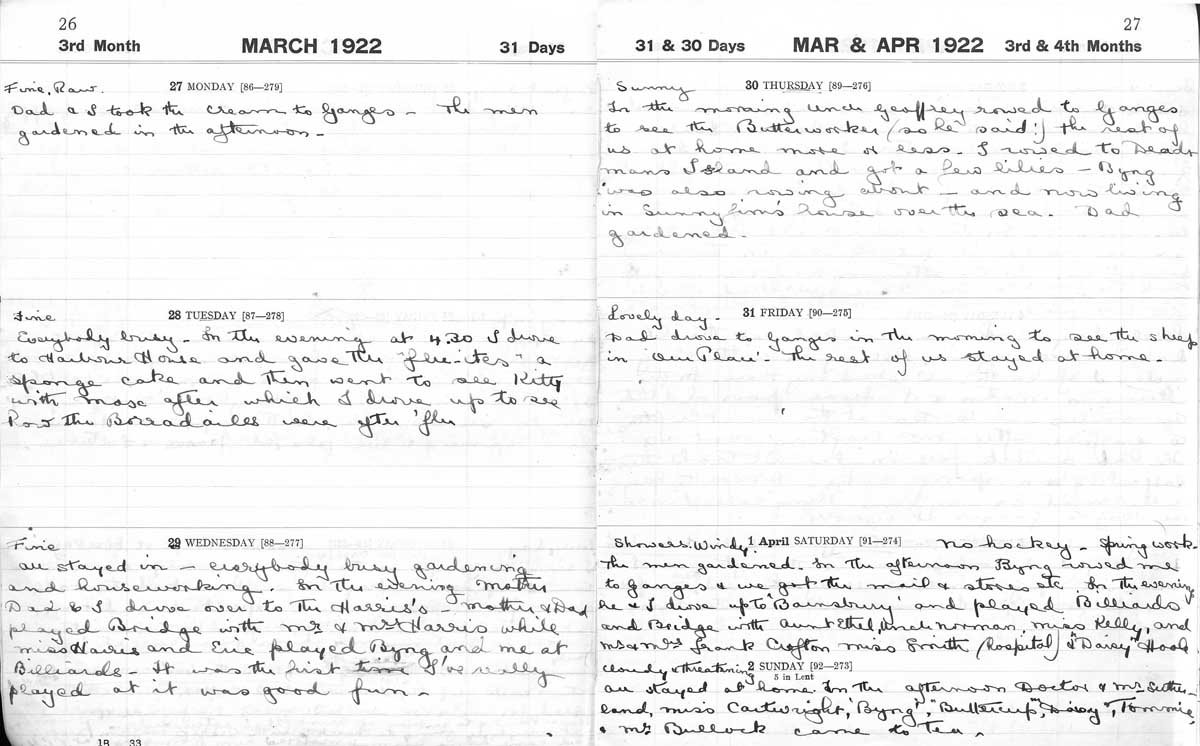 26
3rd Month MARCH 1922 31 Days
Fine, Raw. 27 MONDAY [86—279]
Dad & I took the cream to Ganges – The men
gardened in the afternoon –
Fine 28 TUESDAY [87—278]
Everybody busy – In the evening at 4.30 I drove
to Harbour House and gave the "flu-ites" a
sponge cake and then went to see Kitty
with Mase after which I drove up to see
How the Borradailles were after 'flu
Fine 29 WEDNESDAY [88—277]
all stayed in – everybody busy gardening
and houseworking. In the evening Mother
Dad & I drove over to the Harris's – Mother & Dad
played Bridge with Mr & Mrs Harris while
Miss Harris and Eric played Byng and me at
Billiards – It was the first time I've really
played at it was good fun –
18 33
27
31 & 30 Days MAR & APR 1922 3rd & 4th Months
Sunny 30 THURSDAY [89—276]
In the morning Uncle Geoffrey rowed to Ganges
to see the Butterworker (so he said!) the rest of
us at home more or less – I rowed to Dead
mans Island and got a few lilies – Byng
was also rowing about – and now living
in Sunny Jim's house over the sea. Dad
gardened –
Lovely day – 31 FRIDAY [90—275]
Dad drove to Ganges in the morning to see the sheep
in 'Our Place'. The rest of us stayed at home –
Showers. Windy 1 April SATURDAY [91—274] No hockey – Spring work –
The men gardened. In the afternoon Byng rowed me
to Ganges & we got the mail & stores etc. In the evening
he & I drove up to 'Bainsbury' and played Billiards
and Bridge with Aunt Ethel, Uncle Norman, Miss Kelly, and
Mr & Mrs Frank Crofton Miss Smith (Hospital) & "Daisy" Hook
cloudy & threatening 2 SUNDAY [92—273]
5 in Lent
all stayed at home In the afternoon Doctor & Mrs Suther-
land, Miss Cartwright, "Byng", "Buttercup", "Daisy", Tommie,
& Mr Bullock came to Tea –